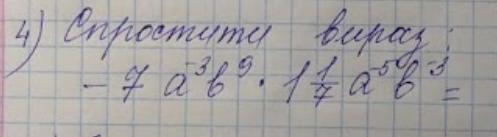 4) Спростити вираз:
- 7 a⁻³b⁹ · 1 1/7 a⁻⁵b⁻³ =